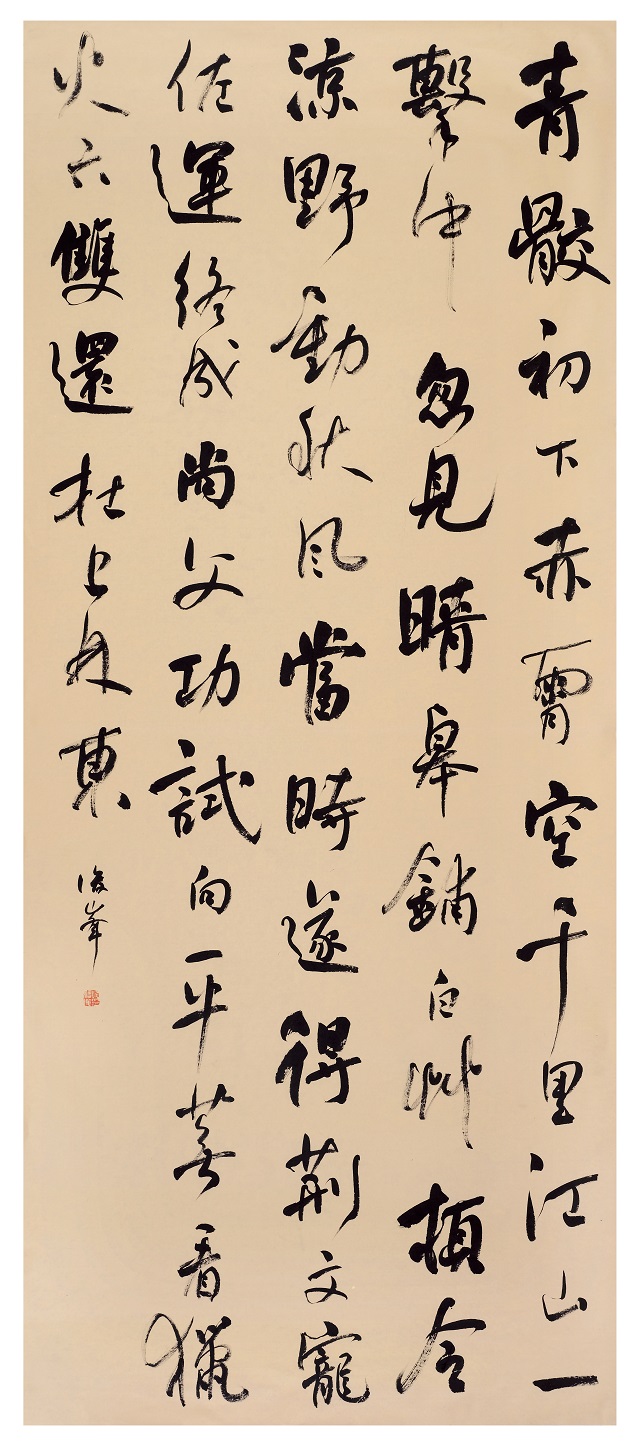 青骹初下赤霄空千里江山一
擊中忽見晴皋鋪白艸頓令
涼野動秋風當時遂得荆文寵
佐運終成尚父功試向平蕪看獵
火六雙還杜上林東
峯